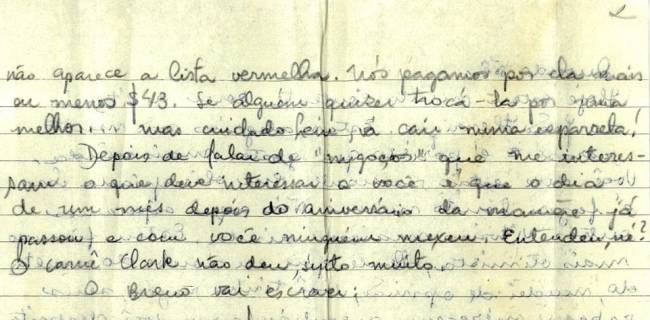 não aparece a lista vermelha. Nós pagamos por ela mais
ou menos $43. Se alguém quizer trocá-la por
melhor... mas cuidado cair numa esparrela!
Depois de falar de "migoços" que me interes-
sam o que deve interessar a você é que o dia
de um mês depois do aniversário da mamãe já
passou e com você ninguém mexeu. Entendeu, né?
O carnê Clark não deu, muito.
O vai escrever;